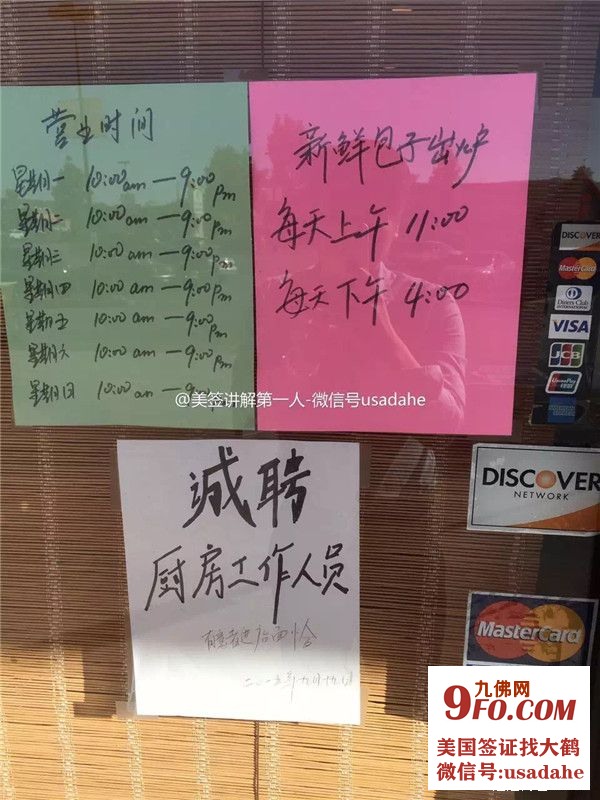 营业时间
星期一 10:00 am — 9:00 pm
星期二 10:00 am — 9:00 pm
星期三 10:00 am — 9:00 pm
星期四 10:00 am — 9:00 pm
星期五 10:00 am — 9:00 pm
星期六 10:00 am — 9:00 pm
星期日 10:00 am — 9:00
新鲜包子出炉
每天上午 11:00
每天下午 4:00
DISCOVER
MasterCard
Diners Club
INTERNATIONAL
VISA
JCB
UnionPay
@美签讲解第一人-微信号usadahe
诚聘
厨房工作人员
有意者进店面洽
二〇一五年九月十九日
DISCOVER
NETWORK
MasterCard
九佛网
9FO.COM
美国签证找大鹤
微信号:usadahe